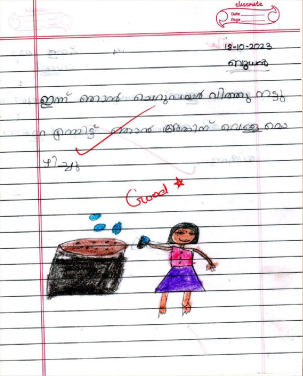 classmate
Date
Page
18-10-2023
ബുധൻ
ഇന്ന് ഞാൻ ചെറുപയർ വിത്തു നട്ടു
എന്നിട്ട് ഞാൻ അതിന് വെള്ളം ഒ
ഴിച്ചു
Good